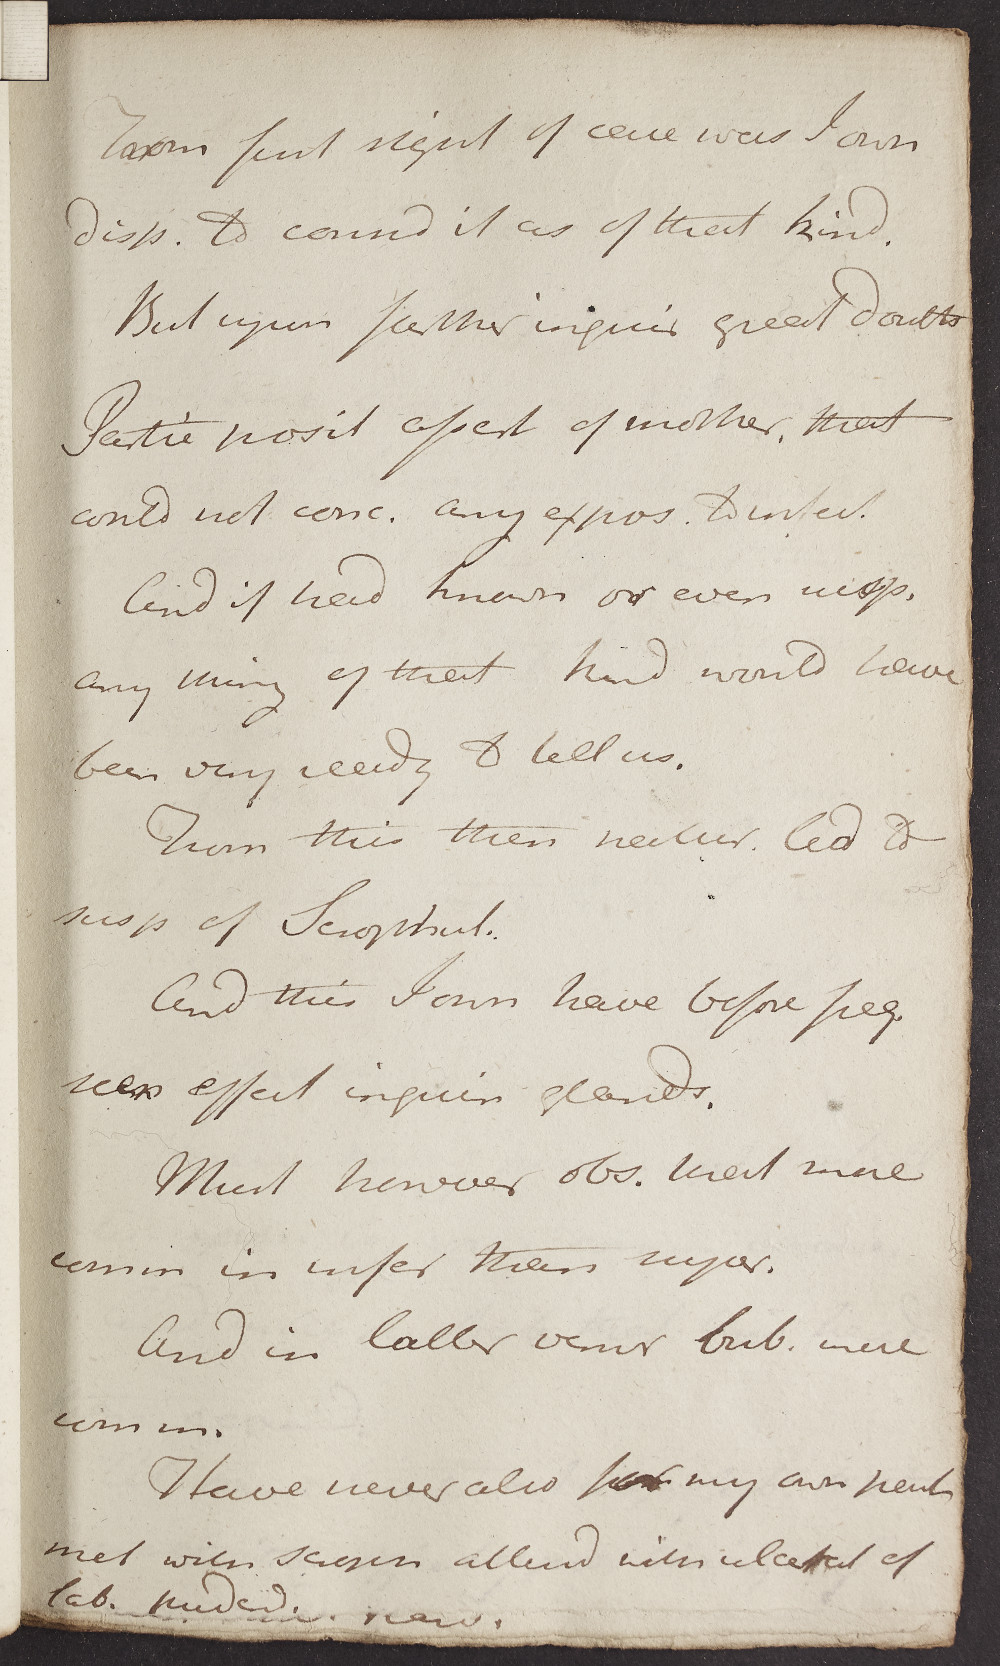 From first sight of case was I own
disp. to consid it as of that kind.
But upon farther inquir great doubts
Partic posit assert of mother, that
could not conc. any expos. to infect.
And if had known or even susp.
any thing of that kind would have
been very ready to tell us.
From this then natur. led to
susp of Scrophul.
And this I own have before freq.
seen affect inguin glands.
Must however obs. that more
comm in infer than super.
And in latter vener bub. more
comm.
Have never also for my own part
met with scroph attend with ulcerat of
lab. pudend.